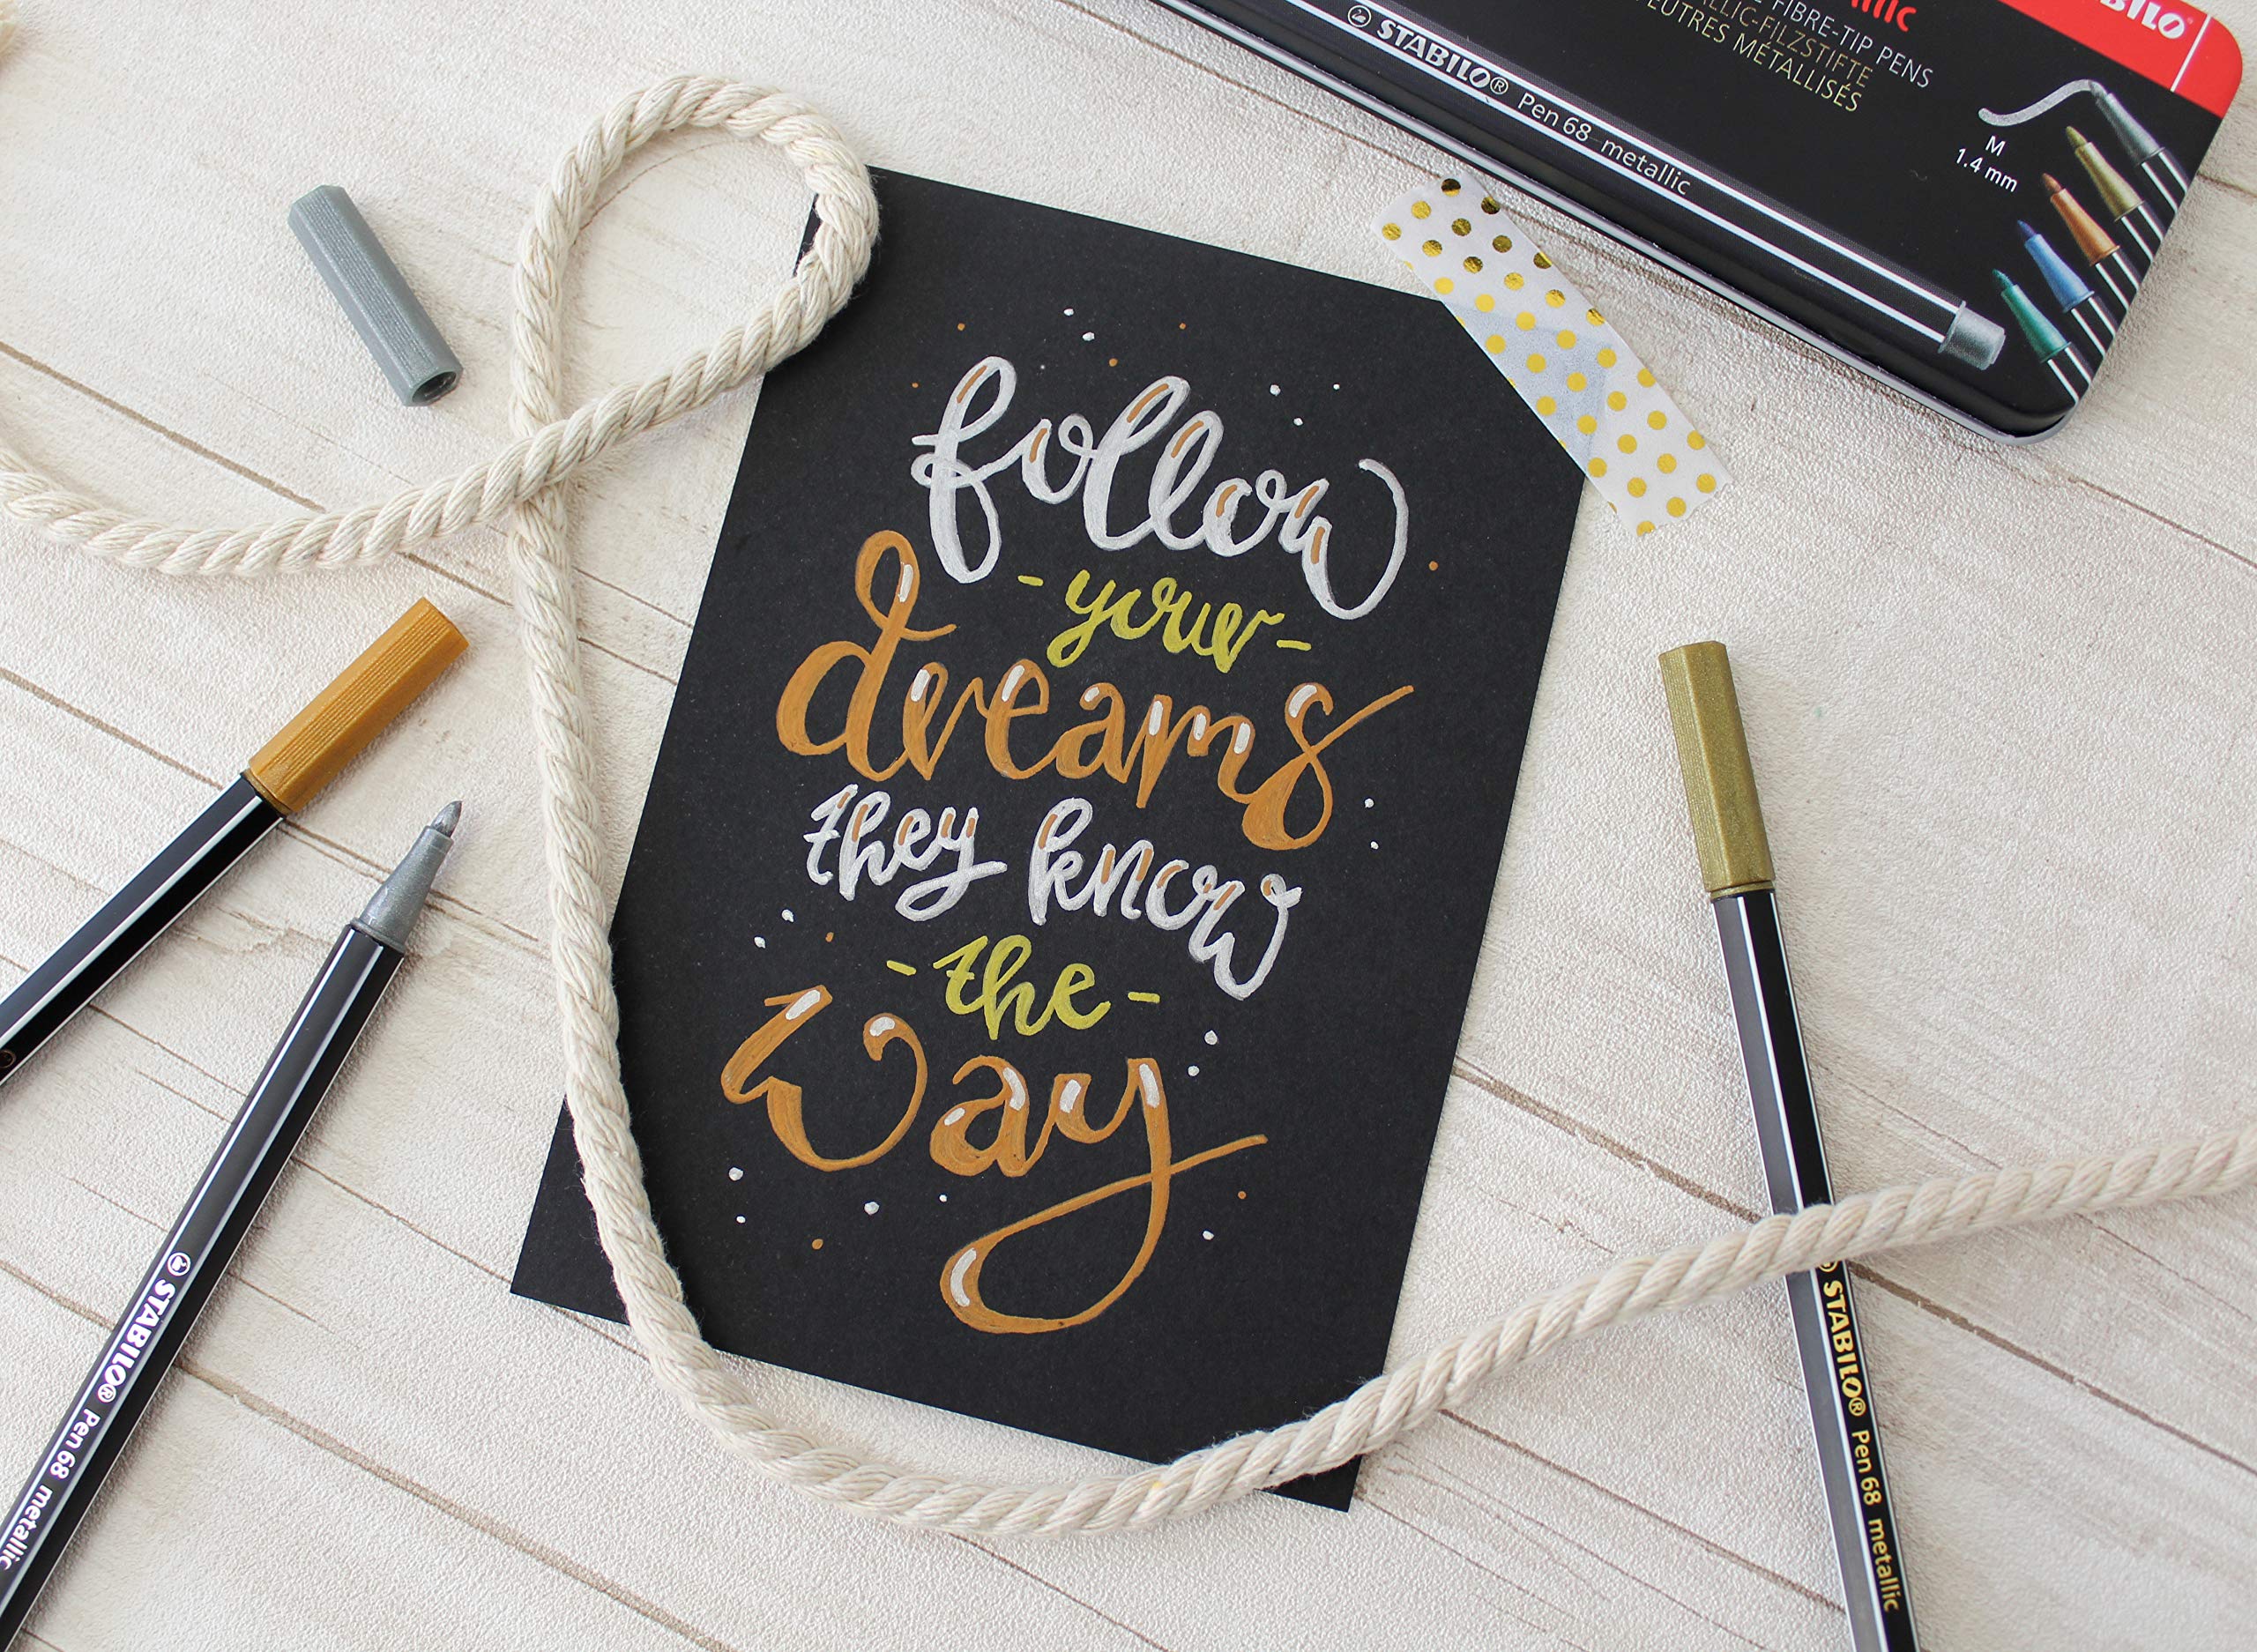 BILO®
llic
FIBRE-TIP PENS
ALLIC-FILZSTIFTE
FEUTRES MÉTALLISÉS
STABILO® Pen 68 metallic
M
1.4 mm
follow
- your -
dreams
they know
- the -
way
STABILO® Pen 68 metallic
STABILO® Pen 68 metallic